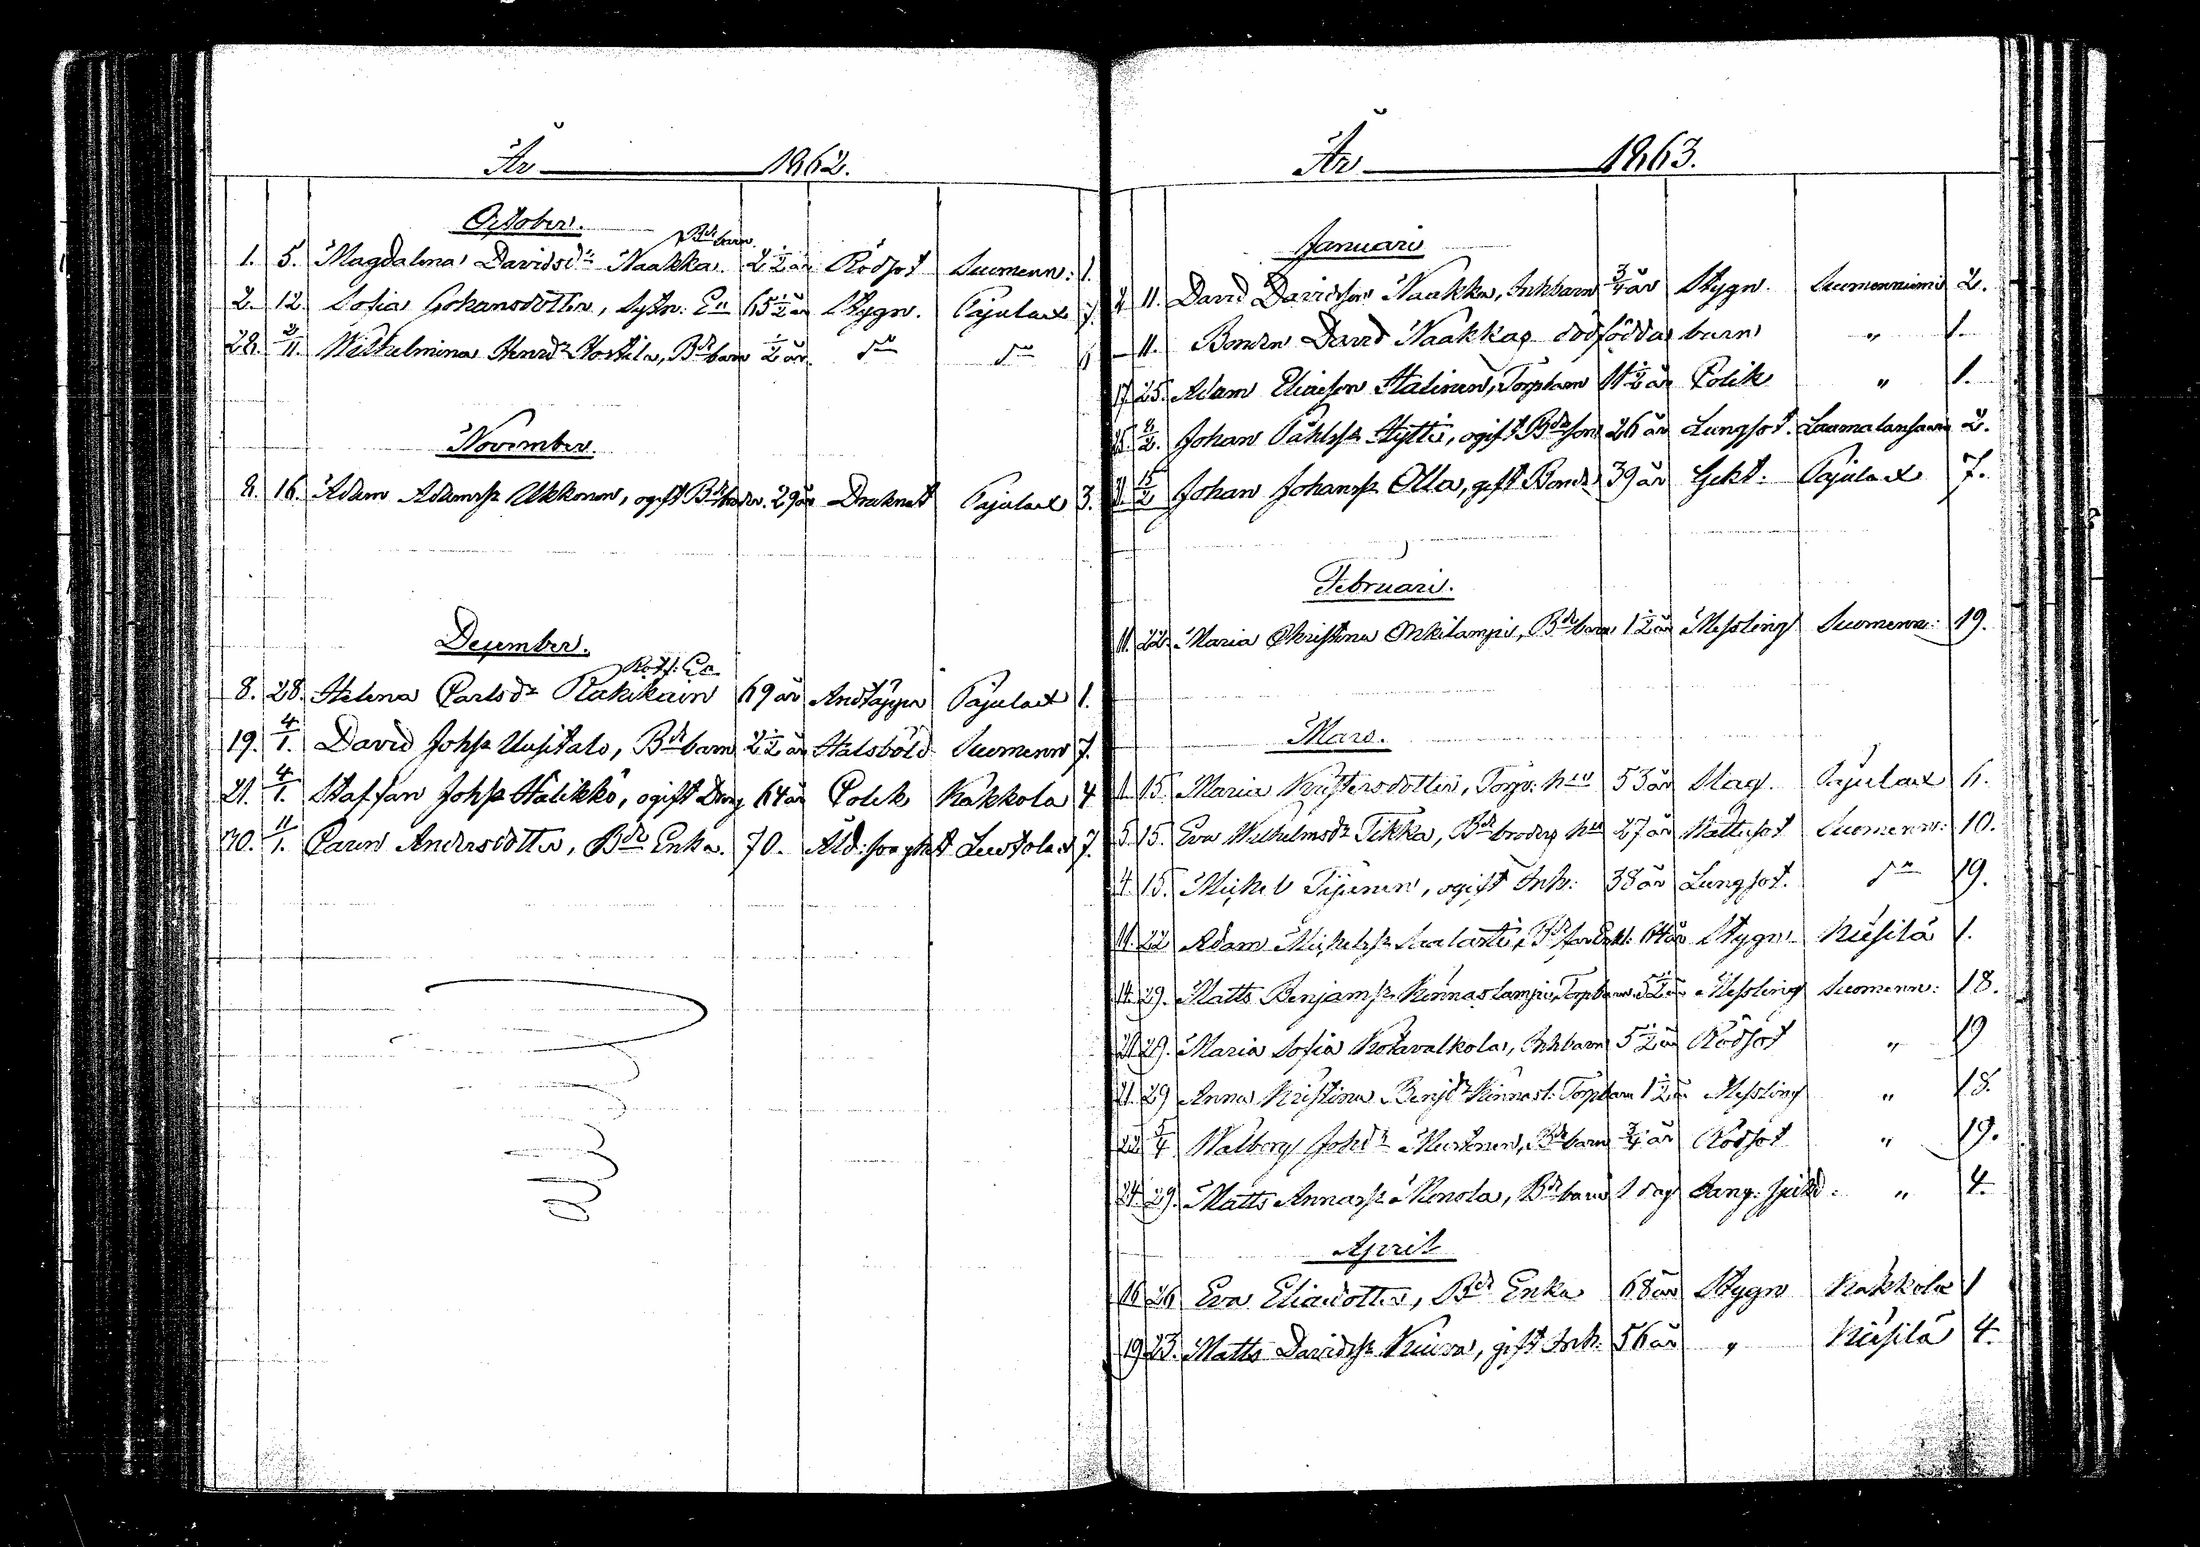 År 1862.
October.
Bde barn
1. 5. Magdalena Davidsdr Naakka 2 1/2 år Rödsot Suomenn: 1.
2. 12. Sofia Johansdotter, Sytn: En 65 1/2 år Stygn. Pajulax 7.
28. 2/11. Wilhelmina Henrdr Hostila, Bde barn 1/2 år do do
November.
8. 16. Adam Adamss: Ukkonen, ogift Bde broder. 29 år Pajulax 3.
December.
Rotf: Ea
8. 28. Helena Carlsdr Rakikain 69 år Andtäppa Pajulax 1.
19. 4/1. David Johss Uusitalo, Bde barn 2 1/2 år Halsböld Suomenn 7.
21. 4/1. Staffan Johss Hälikkö, ogift Dräng 64 år Kolik Kakkola 4
30. 11/1. Caren Andersdotter, Bde Enka. 70. Åld: Leutola 7.
År 1863.
Januari
11. David Davidson Naakka, Inhbarn 3/4 år Stygn. Suomenniemi 2.
11. Bonden David Naakkas dödfödda barn " 1.
17. 25. Adam Eliasson Halinen, Torpbarn 11 1/2 år Kolik " 1.
2/2. Johan Påhlss Hytti, ogift Bde son 26 år Lungsot. Laamalansaari 2.
15/2 Johan Johanss Olla, gift Bonde 39 år Hekt: Pajulax 7.
Februari.
11. 22. Maria Christina Onkilampi, Bde barn 1 1/2 år Messling Suomenn: 19.
Mars.
1. 15. Maria Kristersdotter, Torp: hu 53 år Slag. Pajulax 6.
5. 15. Eva Wilhelmsdr Tikka, Bde broders hu 27 år Suomenn: 10.
4. 15. Mickel Tijanen, ogift Inh: 38 år Lungsot. do 19.
11. 22 Adam Mickelss 64 år Stygn Kiisilä 1.
14. 29. Matts Benjamss Kinnaslampi, Torpbarn 5 1/2 år Messling Suomenn: 18.
21 29. Maria Sofia Kotavalkola, Inhbarn 5 1/2 år Rödsot " 19
21. 29 Anna Kristina Benjdr Kinnasl: Torpbarn 1 1/2 år Messling " 18.
22 5/4 Walborg Johdr Murtonen, Bde barn 3/4 år Rödsot " 19.
24. 29. Matts Annass Monola, Bde barn 1 dag " 4.
April
16 26 Eva Eliadotter, Bde Enka 68 år Stygn Kakkola 1
19 23. Matts Davidss Kiuru, gift Inh: 56 år " Kiisilä 4.